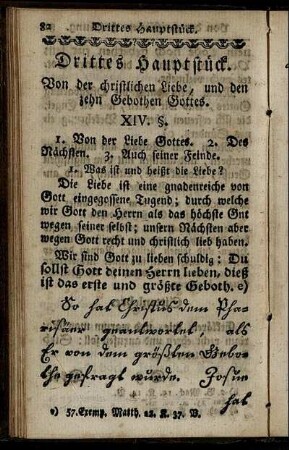 82 Drittes Hauptstück.
Drittes Hauptstück.
Von der christlichen Liebe, und den
zehn Gebothen Gottes.
XIV. §.
1. Von der Liebe Gottes. 2. Des
Nächsten. 3. Auch seiner Feinde.
1. Was ist und heißt die Liebe?
Die Liebe ist eine gnadenreiche von
Gott eingegossene Tugend; durch welche
wir Gott den Herrn als das höchste Gut
wegen seiner selbst; unsern Nächsten aber
wegen Gott recht und christlich lieb haben.
Wir sind Gott zu lieben schuldig: Du
sollst Gott deinen Herrn lieben, dieß
ist das erste und größte Geboth. e)
So hat Christus dem Pha-
risäer geantwortet, als
Er von dem größten Gebo-
the gefragt wurde. Josue
hat
e) 57. Exemp. Matth. 22. K. 37. V.